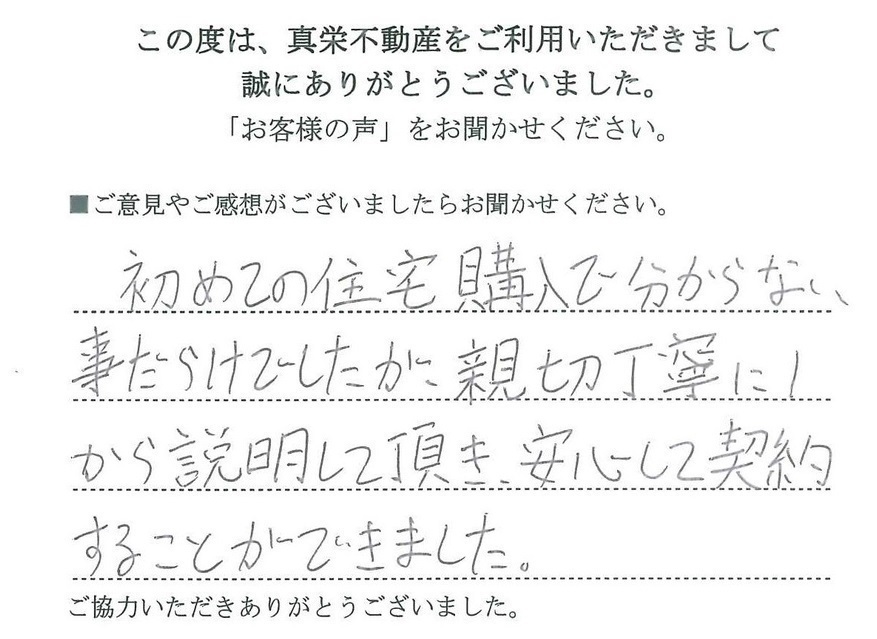 この度は、真栄不動産をご利用いただきまして
誠にありがとうございました。
「お客様の声」をお聞かせください。
■ご意見やご感想がございましたらお聞かせください。
初めての住宅購入で分からない
事だらけでしたが、親切丁寧に1
から説明して頂き、安心して契約
することができました。
ご協力いただきありがとうございました。